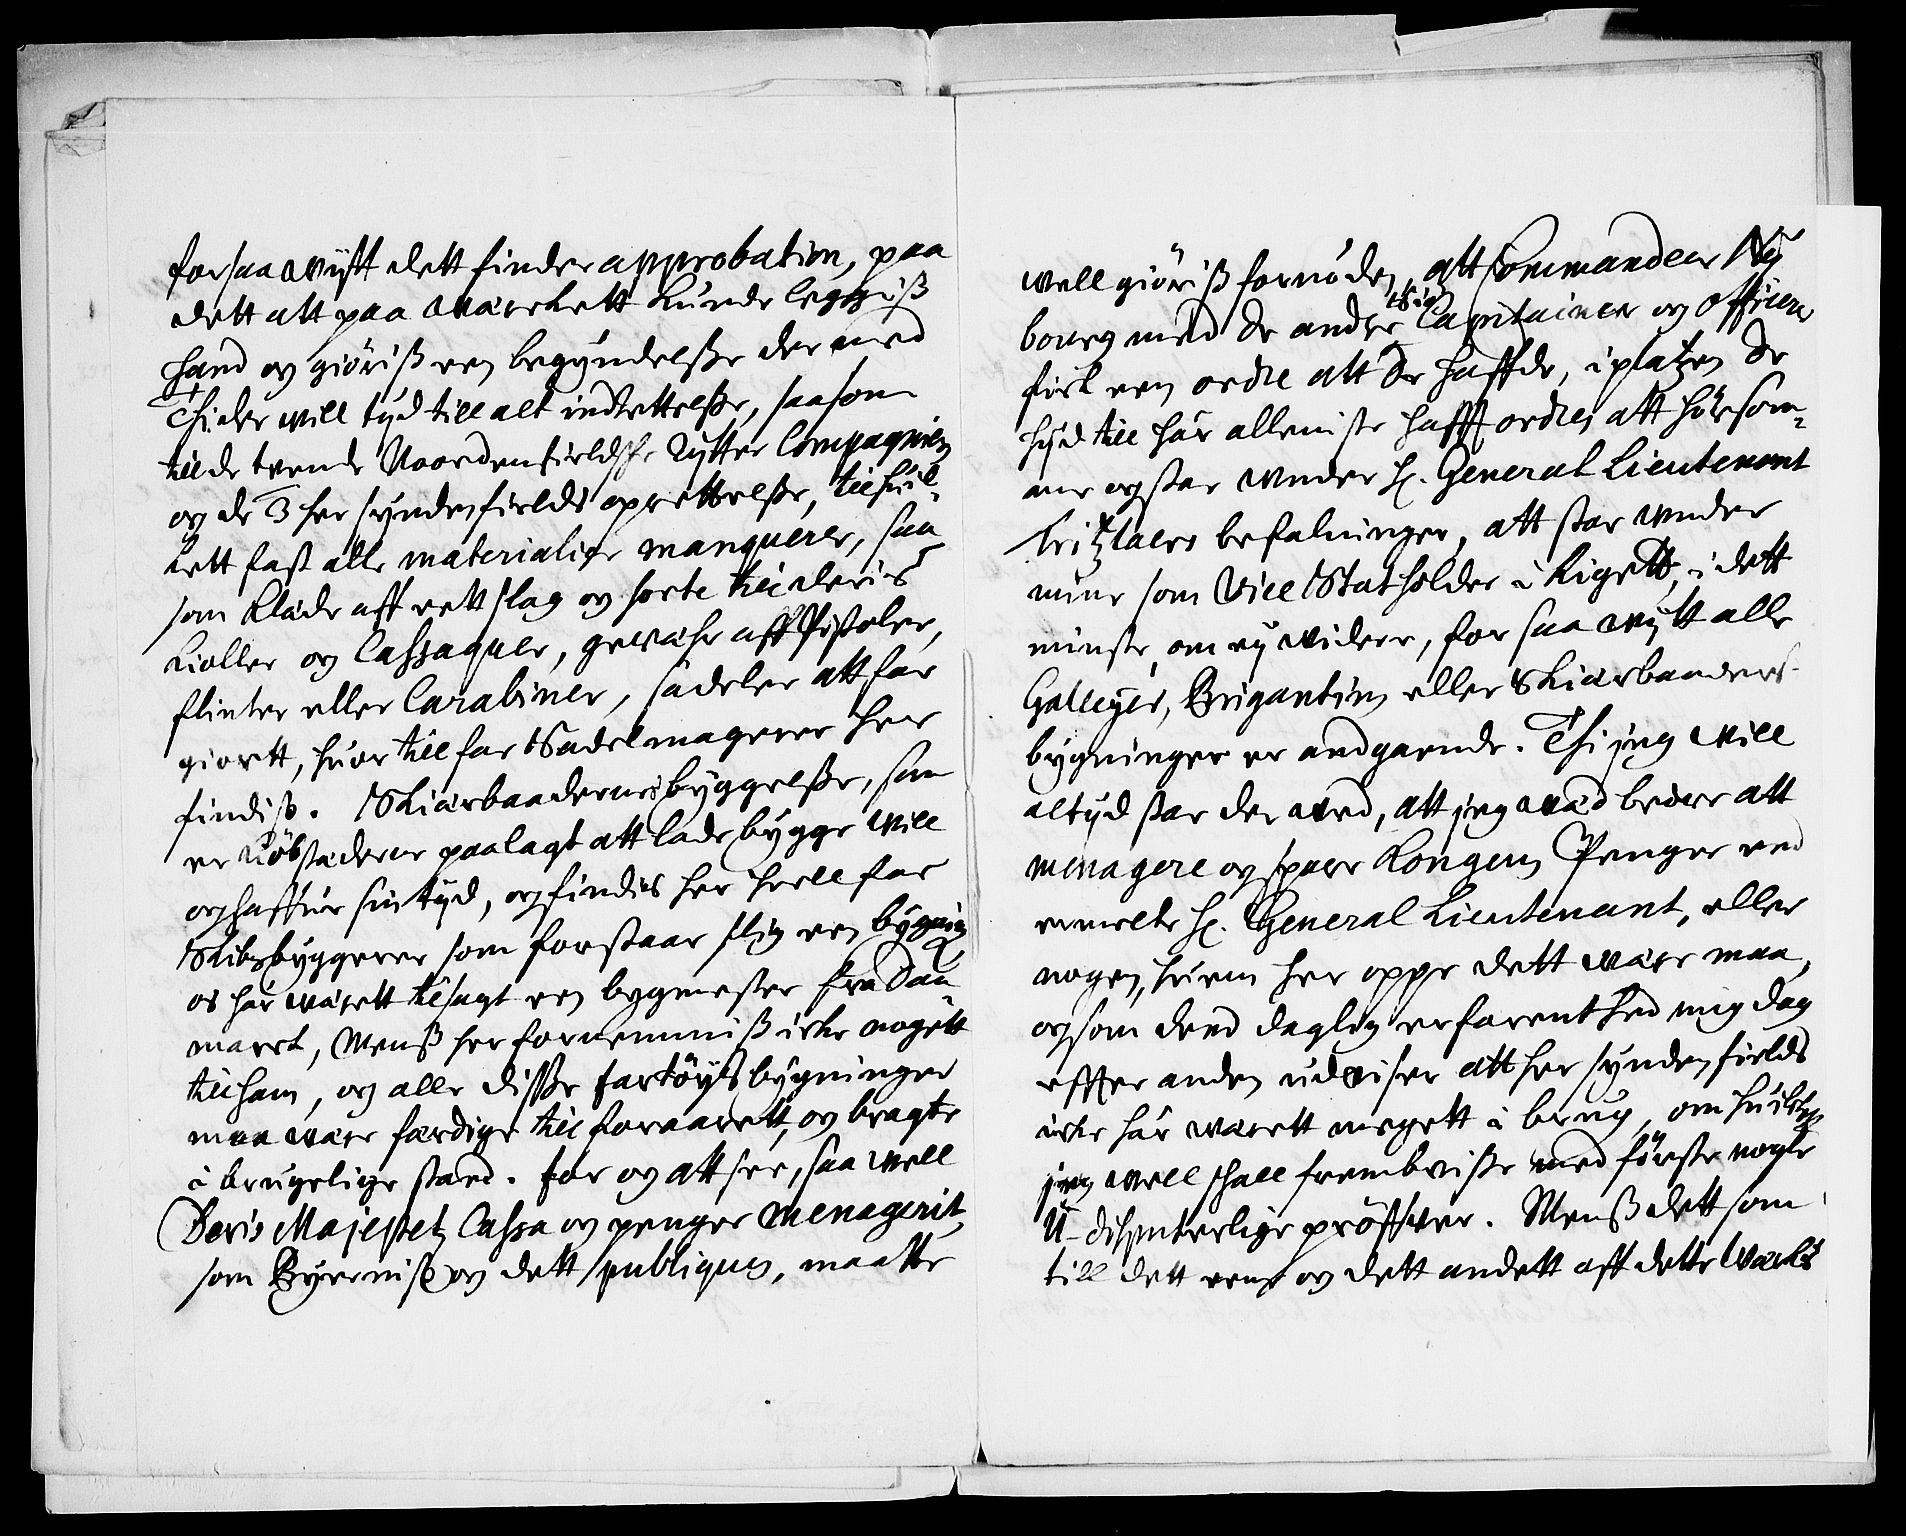 forsaa wijtt dett finder approbation, paa
dett att paa wærckett kunde leggiß
hand og giöriß een begyndelße der med
Thi der will tijd till alt indrettelße, saasom
till de tvende Noordenfieldsche Rytter Compagnier
og de 3 her syndenfields oprettelße, till huil-
kett fast alle materialier manquerer, saa
som Klæde aff rett slag og sorte till deris
kioller og Cassaquer, gewæhr aff Pistoler,
flinter eller Carabiner, sadeler att faa
giortt, huor till faa Sadelmagerer her
findiß. Skiærbaadernes byggelße, som
er Kiöbstæderne paalagt att lade bygge will
og haffue sin tijd, og findes her heell faa
Skibsbyggerer som forstaar slig een bygning
os har wærett tilsagt een bygmester fra Dan
marck, Menß her fornemmiß icke nogett
till ham, og alle disße fartöyes bygninger
maa wære færdige till foraarett, og bragte
i brugelige stand. for og att see, saa well
Deris Majestetz Cassa og penger menagerit,
som Byerniß og dett publiques, maatte
well giöriß fornöden, att Commandeur Ny
bourg med de andre Siö Capitainer og Officerer
fick een ordre att de haffde, i platzen de
hid till har alleniste hafft ordre, att hörsom-
me og staa under H. General Lieutenant
Tritzlers befalninger, att staa under
mine som Vice Statholder i Rigett, i dett
minste, om ey widere, for saa wijtt alle
Galleyer, Brigantin eller Skiærbaaders
bygninger er andgaaende. Thi jeg will
altijd staa der ved, att jeg wed bedre att
menagere og spare Kongens Penger end
ermelte H. General Lieutenant, eller
nogen, huem her oppe dett wære maa,
og som dend daglig erfarenthed mig dag
effter anden udwiser att her syndenfields
icke har warett megett i brug, om huilcket
jeg well skall frembviße med förste nogle
U-disputerlige pröffver. Menß dett som
till dett eene og dett andett aff dette Wærcks